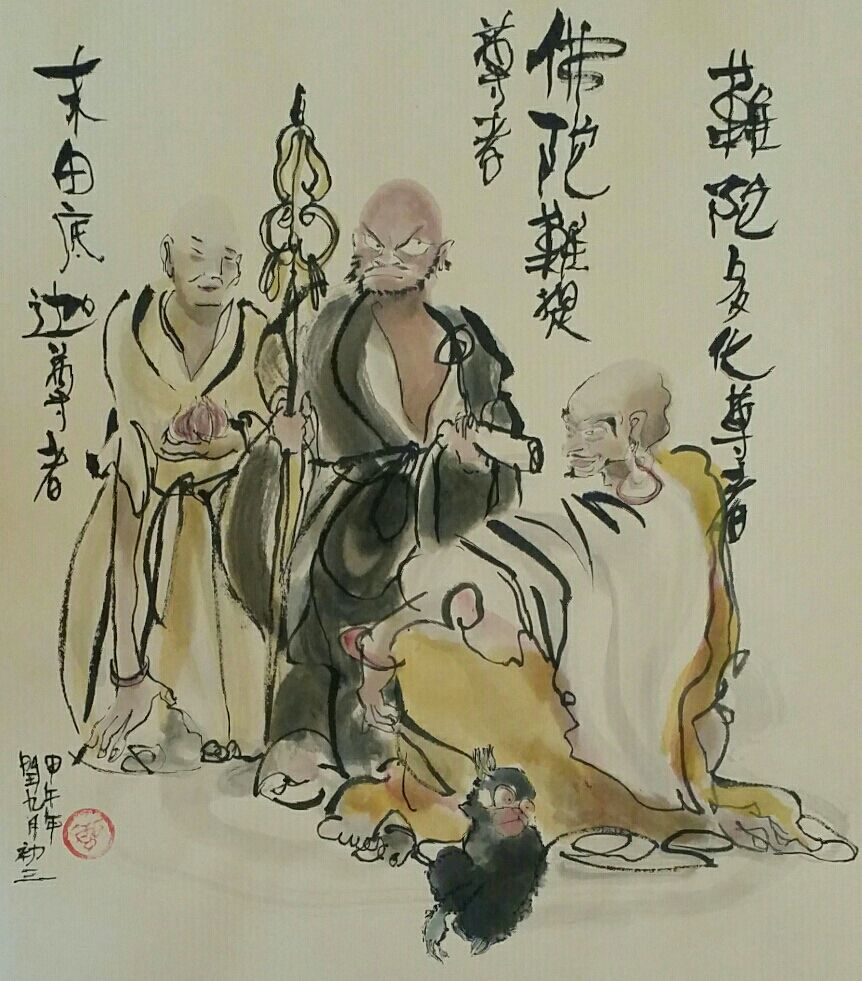 難陀多化尊者
佛陀難提
尊者
末田底迦尊者
甲午年
閏九月初三